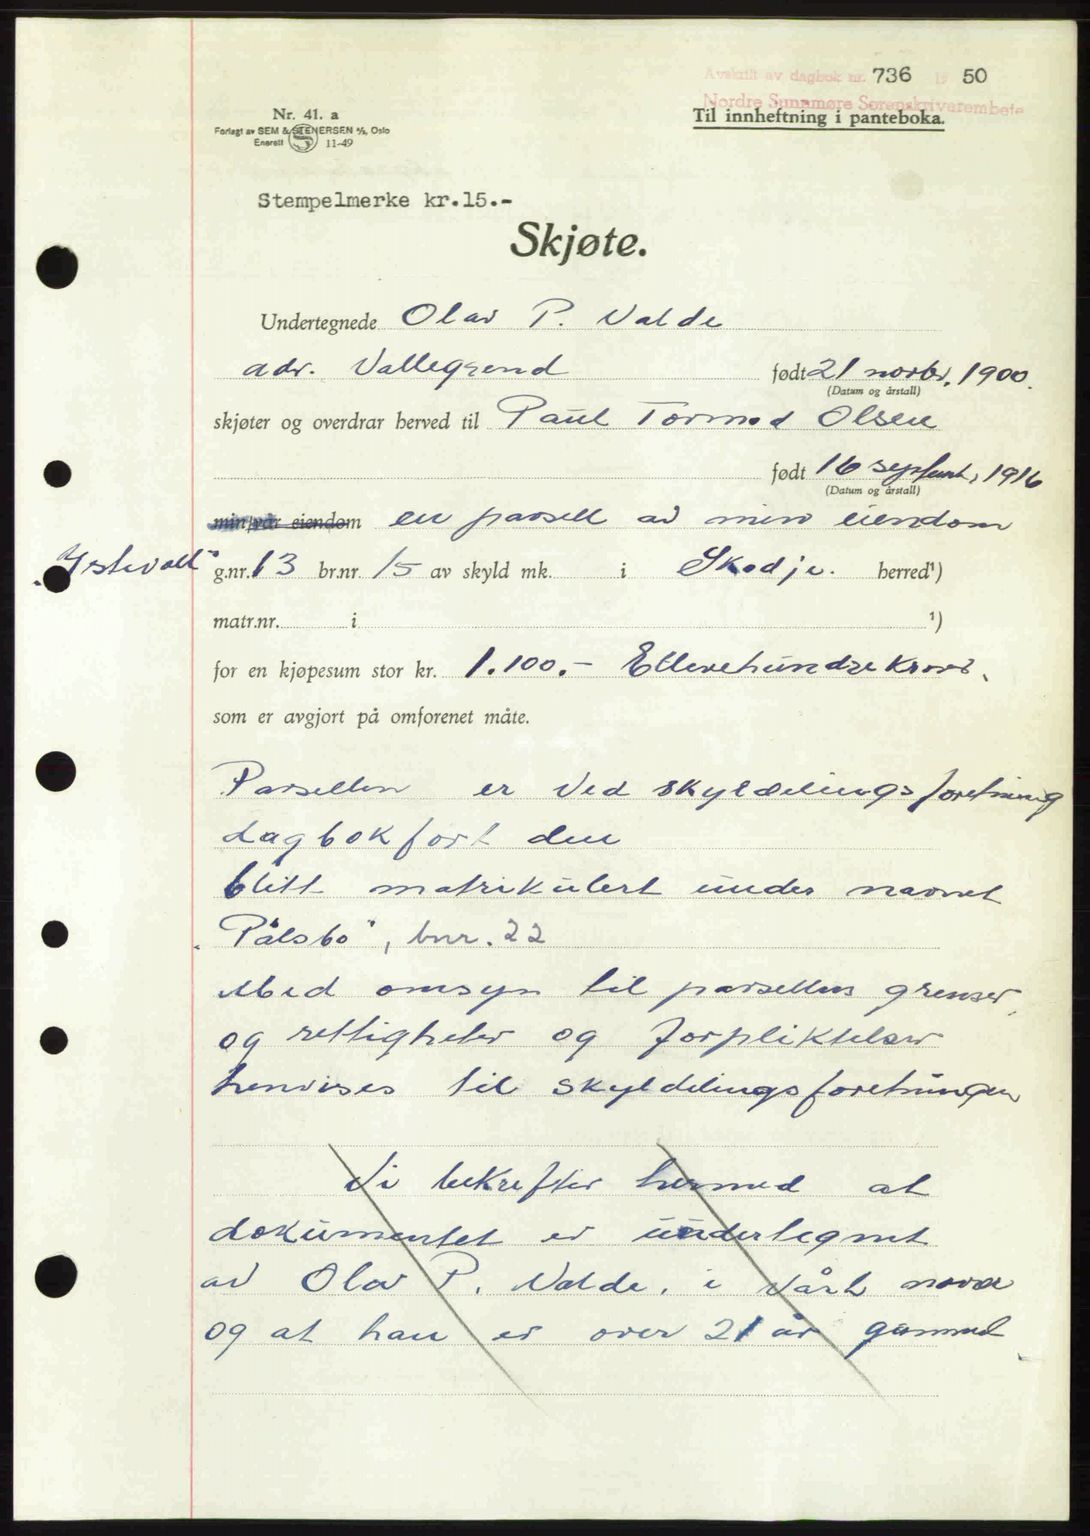 Avskrift av dagbok nr. 736 19 50
Nordre Sunnmøre Sorenskriverembete
Nr. 41. a
Til innheftning i panteboka.
Forlagt av SEM & STENERSEN A/S, Oslo
Enerett 11-49
Stempelmerke kr.15.-
Skjøte.
Undertegnede Olav P. Valde
adr. Vallegrend født 21 novbr. 1900.
(Datum og årstall)
skjøter og overdrar herved til Paul Tormod Olsen
født 16 septemb, 1916
(Datum og årstall)
min/vår eiendom en parsell av min eiendom
„Ystevoll" g.nr. 13 br.nr. 15 av skyld mk. i Skodje. herred¹)
matr.nr. i ¹)
for en kjøpesum stor kr. 1.100.- Ellevehundrekroner.
som er avgjort på omforenet måte.
Parsellen er ved skyldelingsforetning
dagbokført den
blitt matrikulert under navnet
„Pålsbo", bnr. 22
Med omsyn til parsellens grenser
og rettigheter og forpliktelser
henvises til skyldelingsforetningen
Vi bekrefter hermed at
dokumentet er undertegnet
av Olav P. Valde, i vårt nærvær
og at han er over 21 år gammel